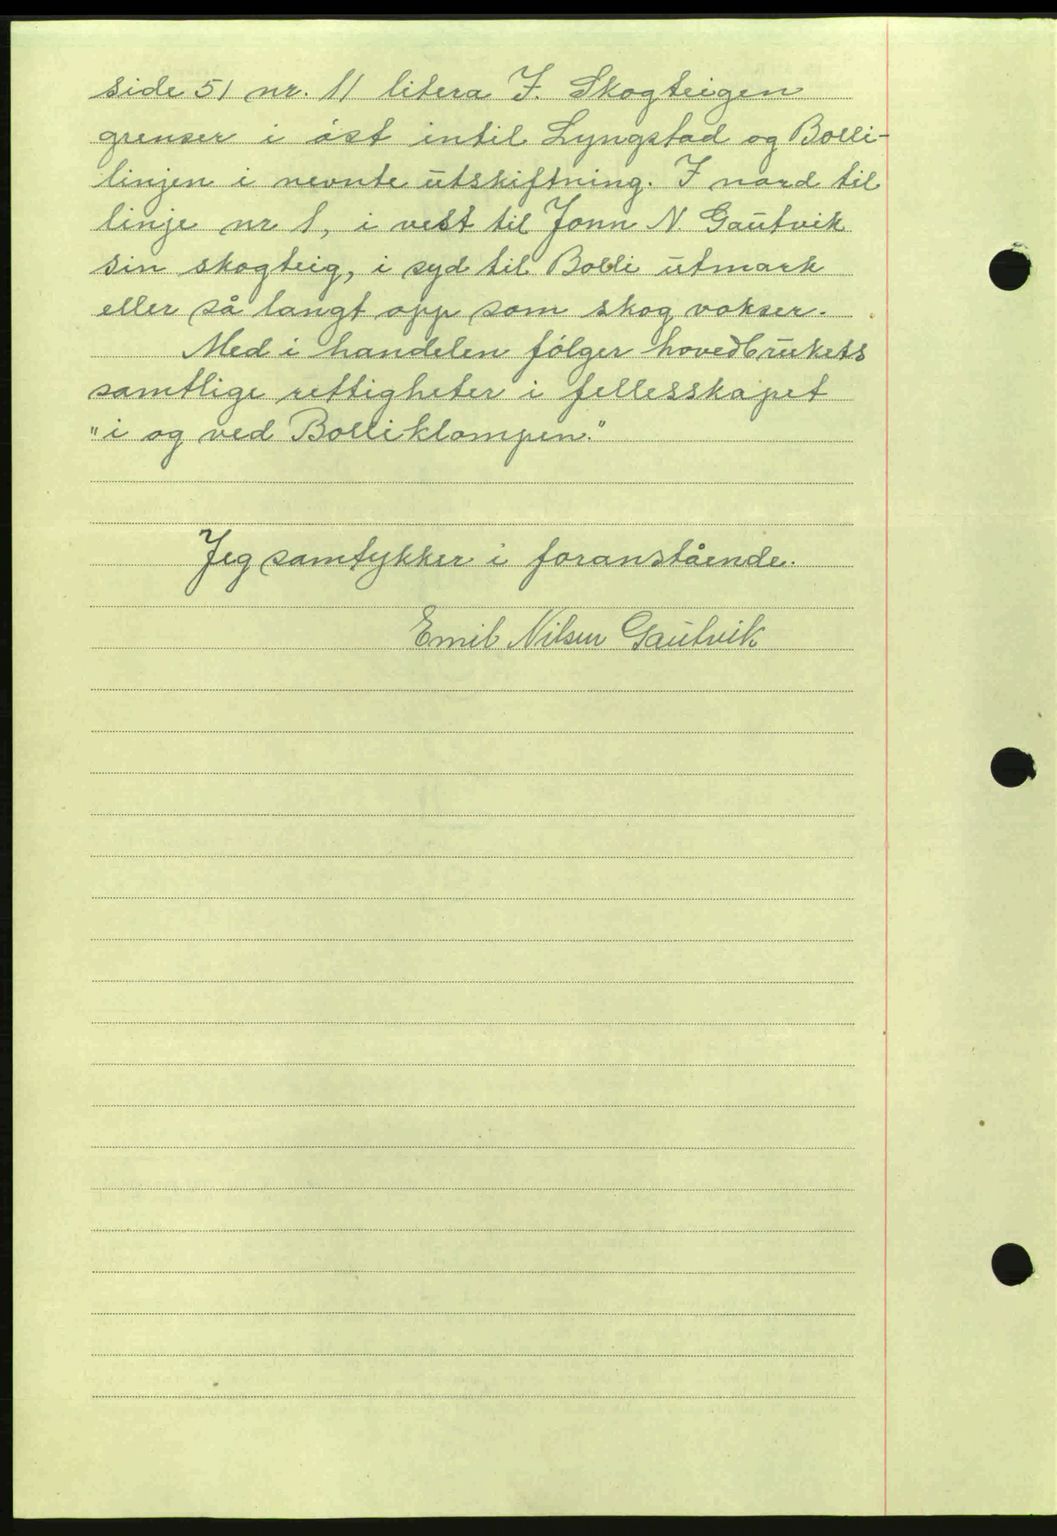 side 51 nr. 11 litera I. Skogteigen
grenser i øst intil Lyngstad og Bolli-
linjen i nevnte utskiftning. I nord til
linje nr 1, i vest til Jonn N Gautvik
sin skogteig, i syd til Bolli utmark
eller så langt opp som skog vokser.
Med i handelen følger hovedbrukets
samtlige rettigheter i fellesskapet
"i og ved Bolliklompen."
Jeg samtykker i foranstående.
Emil Nilsen Gautvik